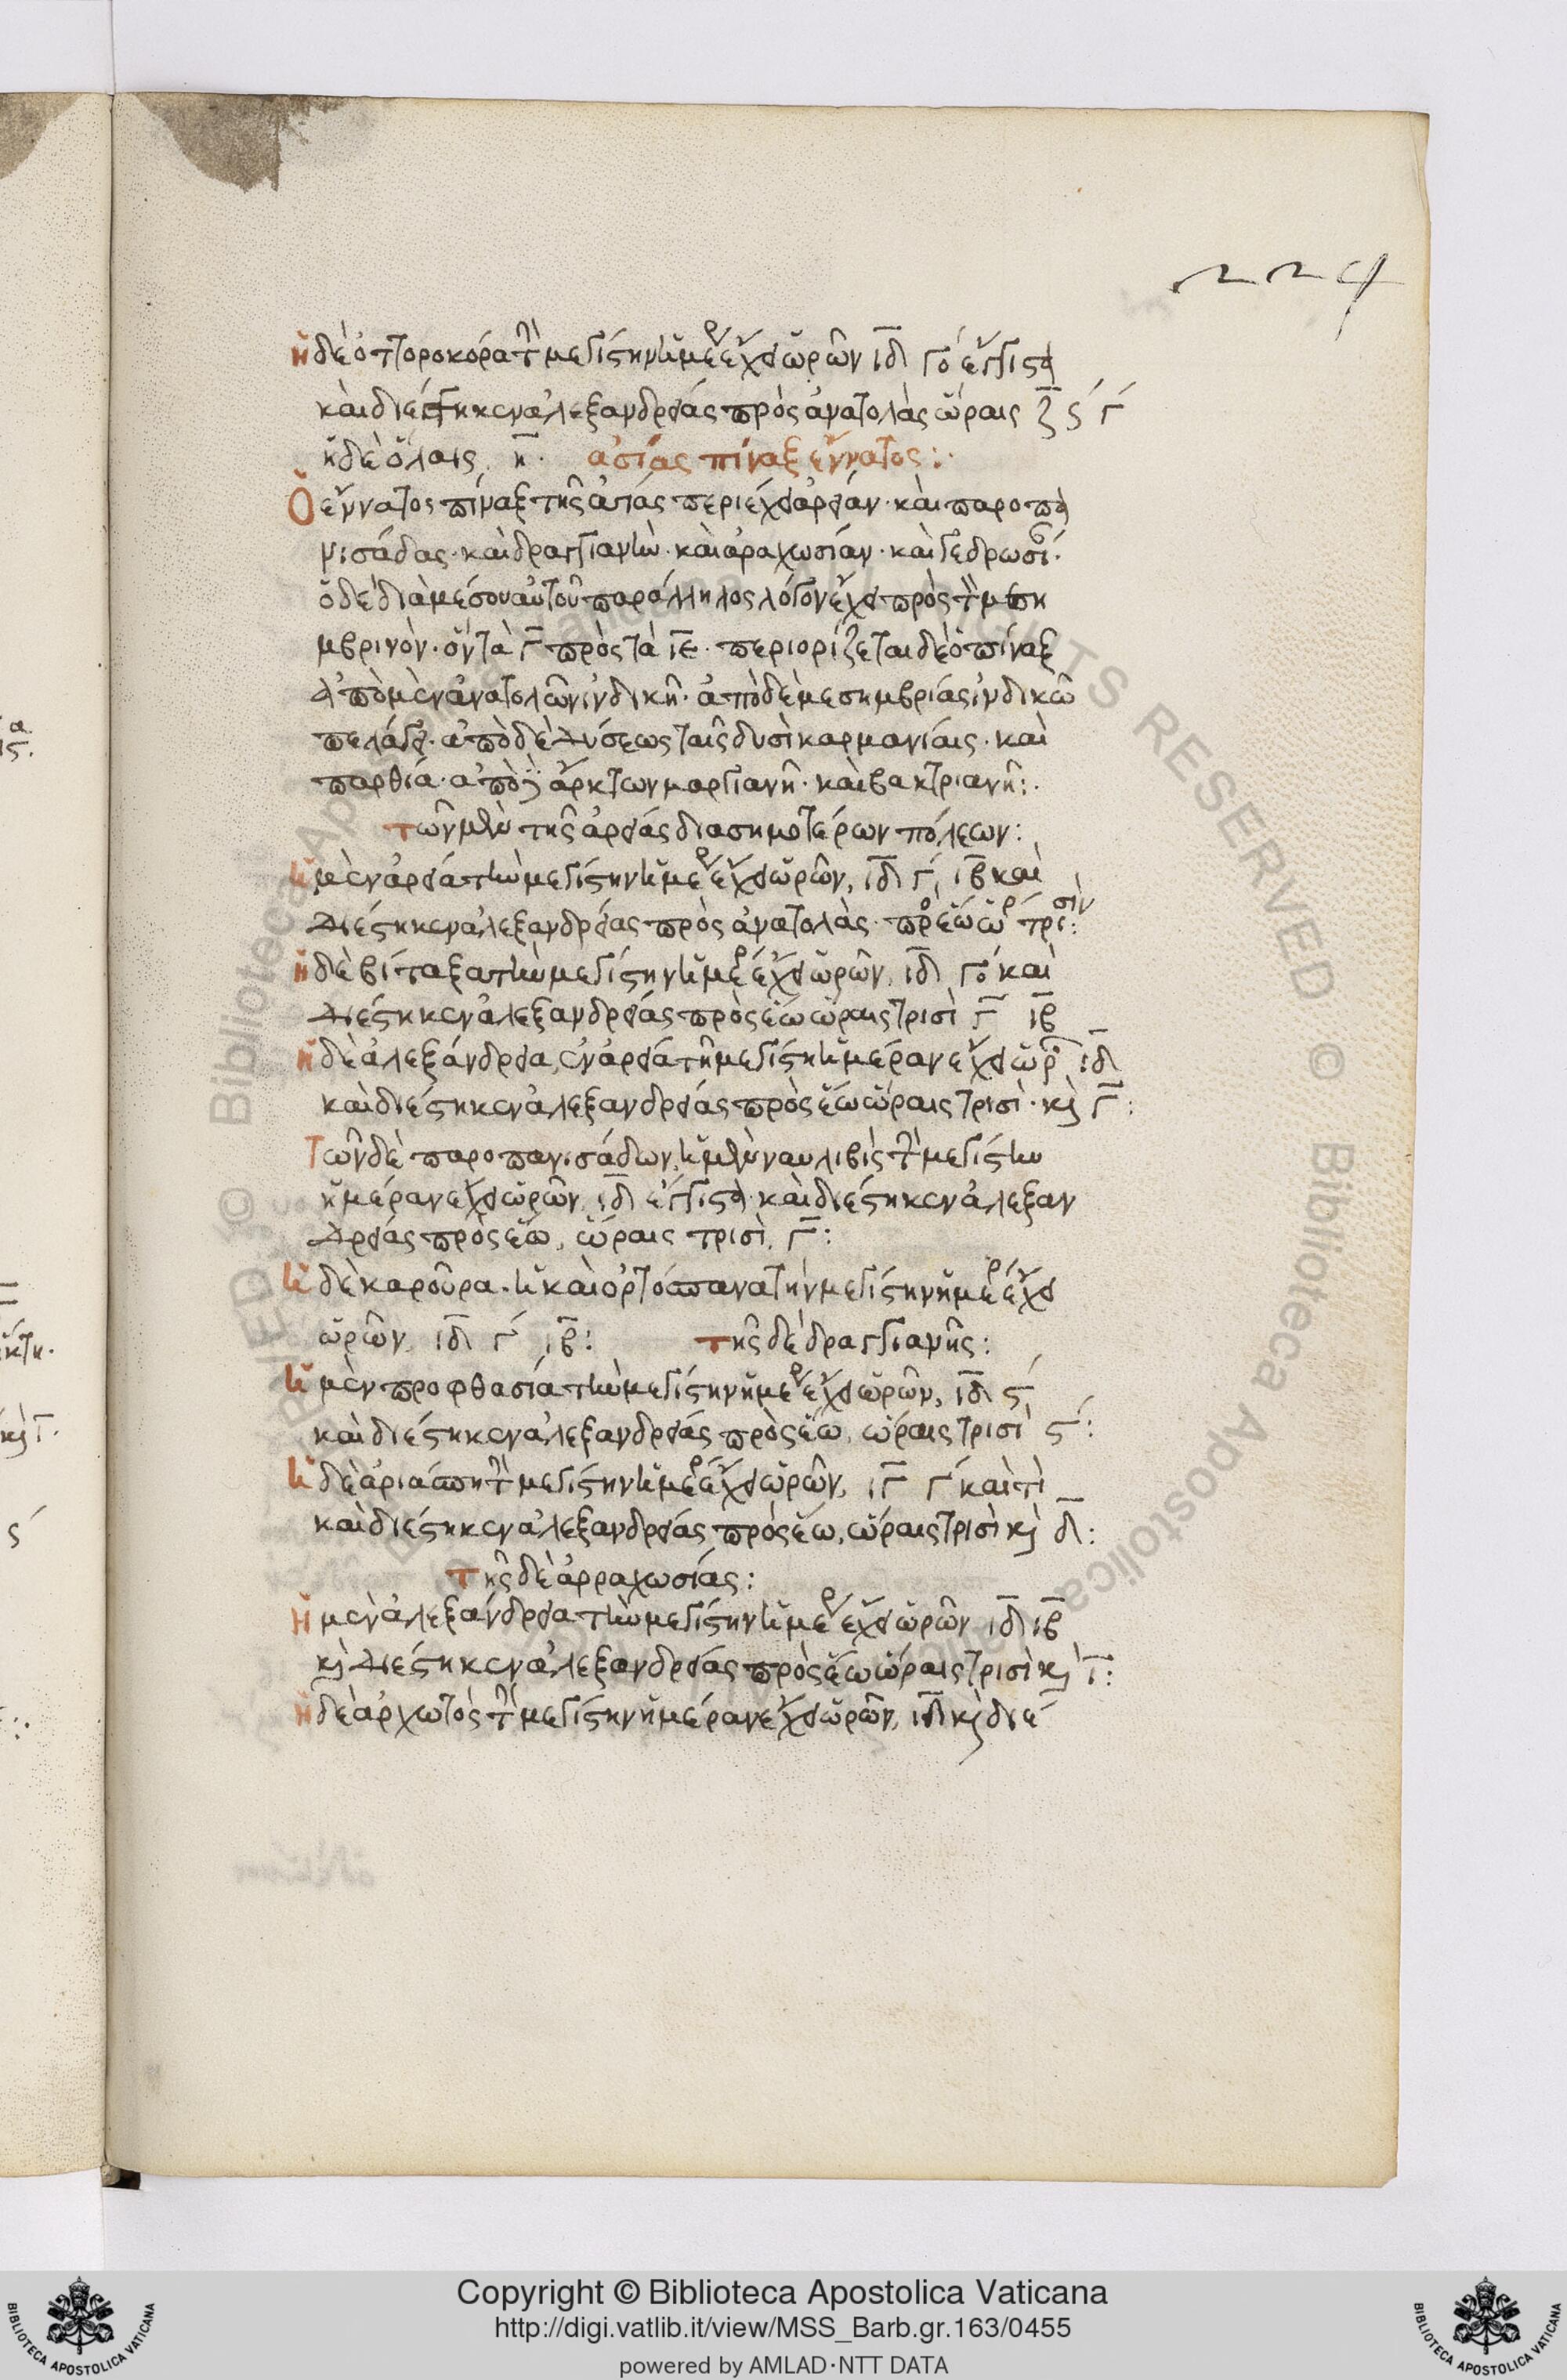 224
ἡ δὲ ὀττοροκόρα τὴν μεγίστην ἡμέραν ἔχει ὡρῶν ιδ γο ἔγγιστα
καὶ διέστηκεν ἀλεξανδρείας πρὸς ἀνατολὰς ὥραις ζ ϛ γ
ἢ δὲ ὅλαις η. ἀσίας πίναξ ἔννατος:·
Ὁ ἔννατος πίναξ τῆς ἀσίας περιέχει ἀρείαν· καὶ παροπα
νισάδας· καὶ δραγγιανὴν· καὶ ἀραχωσίαν· καὶ γεδρωσίαν·
ὁ δὲ διὰ μέσου αὐτοῦ παράλληλος λόγον ἔχει πρὸς τὸν μεση
μβρινὸν· ὃν τὰ γ πρὸς τὰ ιε· περιορίζεται δὲ ὁ πίναξ
ἀπὸ μὲν ἀνατολῶν ἰνδικῇ· ἀπὸ δὲ μεσημβρίας ἰνδικῶ
πελάγει· ἀπὸ δὲ δύσεως ταῖς δυσὶ καρμανίαις· καὶ
παρθία· ἀπὸ δὲ ἄρκτων μαργιανῇ· καὶ βακτριανῇ:·
τῶν μὲν τῆς ἀρείας διασημοτέρων πόλεων:
ἡ μὲν ἀρεία τὴν μεγίστην ἡμέραν ἔχει ὡρῶν, ιδ γ, ιβ καὶ
διέστηκεν ἀλεξανδρείας πρὸς ἀνατολὰς· πρὸς ἕω ὥρ τρισίν:
ἡ δὲ βίταξα τὴν μεγίστην ἡμέραν ἔχει ὡρῶν, ιδ γο καὶ
διέστηκεν ἀλεξανδρείας πρὸς ἕω ὥραις τρισὶ γ ιβ
ἡ δὲ ἀλεξάνδρεια, ἐν ἀρεία τὴν μεγίστη ἡμέραν ἔχει ὡρῶν ιδ
καὶ διέστηκεν ἀλεξανδρείας πρὸς ἕω ὥραις τρισὶ· καὶ γ:
Τῶν δὲ παροπανισάδων, ἡ μὲν ναυλιβὶς τὴν μεγίστην
ἡμέραν ἔχει ὡρῶν, ιδ ἔγγιστα· καὶ διέστηκεν ἀλεξαν
δρείας πρὸς ἕω, ὥραις τρισὶ, γ:
ἡ δὲ καροῦρα· ἡ καὶ ὀρτόσπανα τὴν μεγίστην ἡμέραν ἔχει
ὡρῶν, ιδ γ ιβ: τῆς δὲ δραγγιανῆς:
ἡ μὲν προφθασία τὴν μεγίστην ἡμέραν ἔχει ὡρῶν, ιδ ϛ
καὶ διέστηκεν ἀλεξανδρείας πρὸς ἕω, ὥραις τρισὶ ϛ:
ἡ δὲ ἀριάσπη τὴν μεγίστην ἡμέραν ἔχει ὡρῶν, ιγ γ καὶ τὶ
καὶ διέστηκεν ἀλεξανδρείας πρὸς ἕω, ὥραις τρισὶ καὶ δ:
τῆς δὲ ἀρραχωσίας:
ἡ μὲν ἀλεξάνδρεια τὴν μεγίστην ἡμέραν ἔχει ὡρῶν ιδ ιβ
καὶ διέστηκεν ἀλεξανδρείας πρὸς ἕω ὥραις τρισὶ καὶ γ:
ἡ δὲ ἀρχωτὸς τὴν μεγίστην ἡμέραν ἔχει ὡρῶν, ιδ καὶ διέ
Copyright © Biblioteca Apostolica Vaticana
http://digi.vatlib.it/view/MSS_Barb.gr.163/0455
powered by AMLAD·NTT DATA